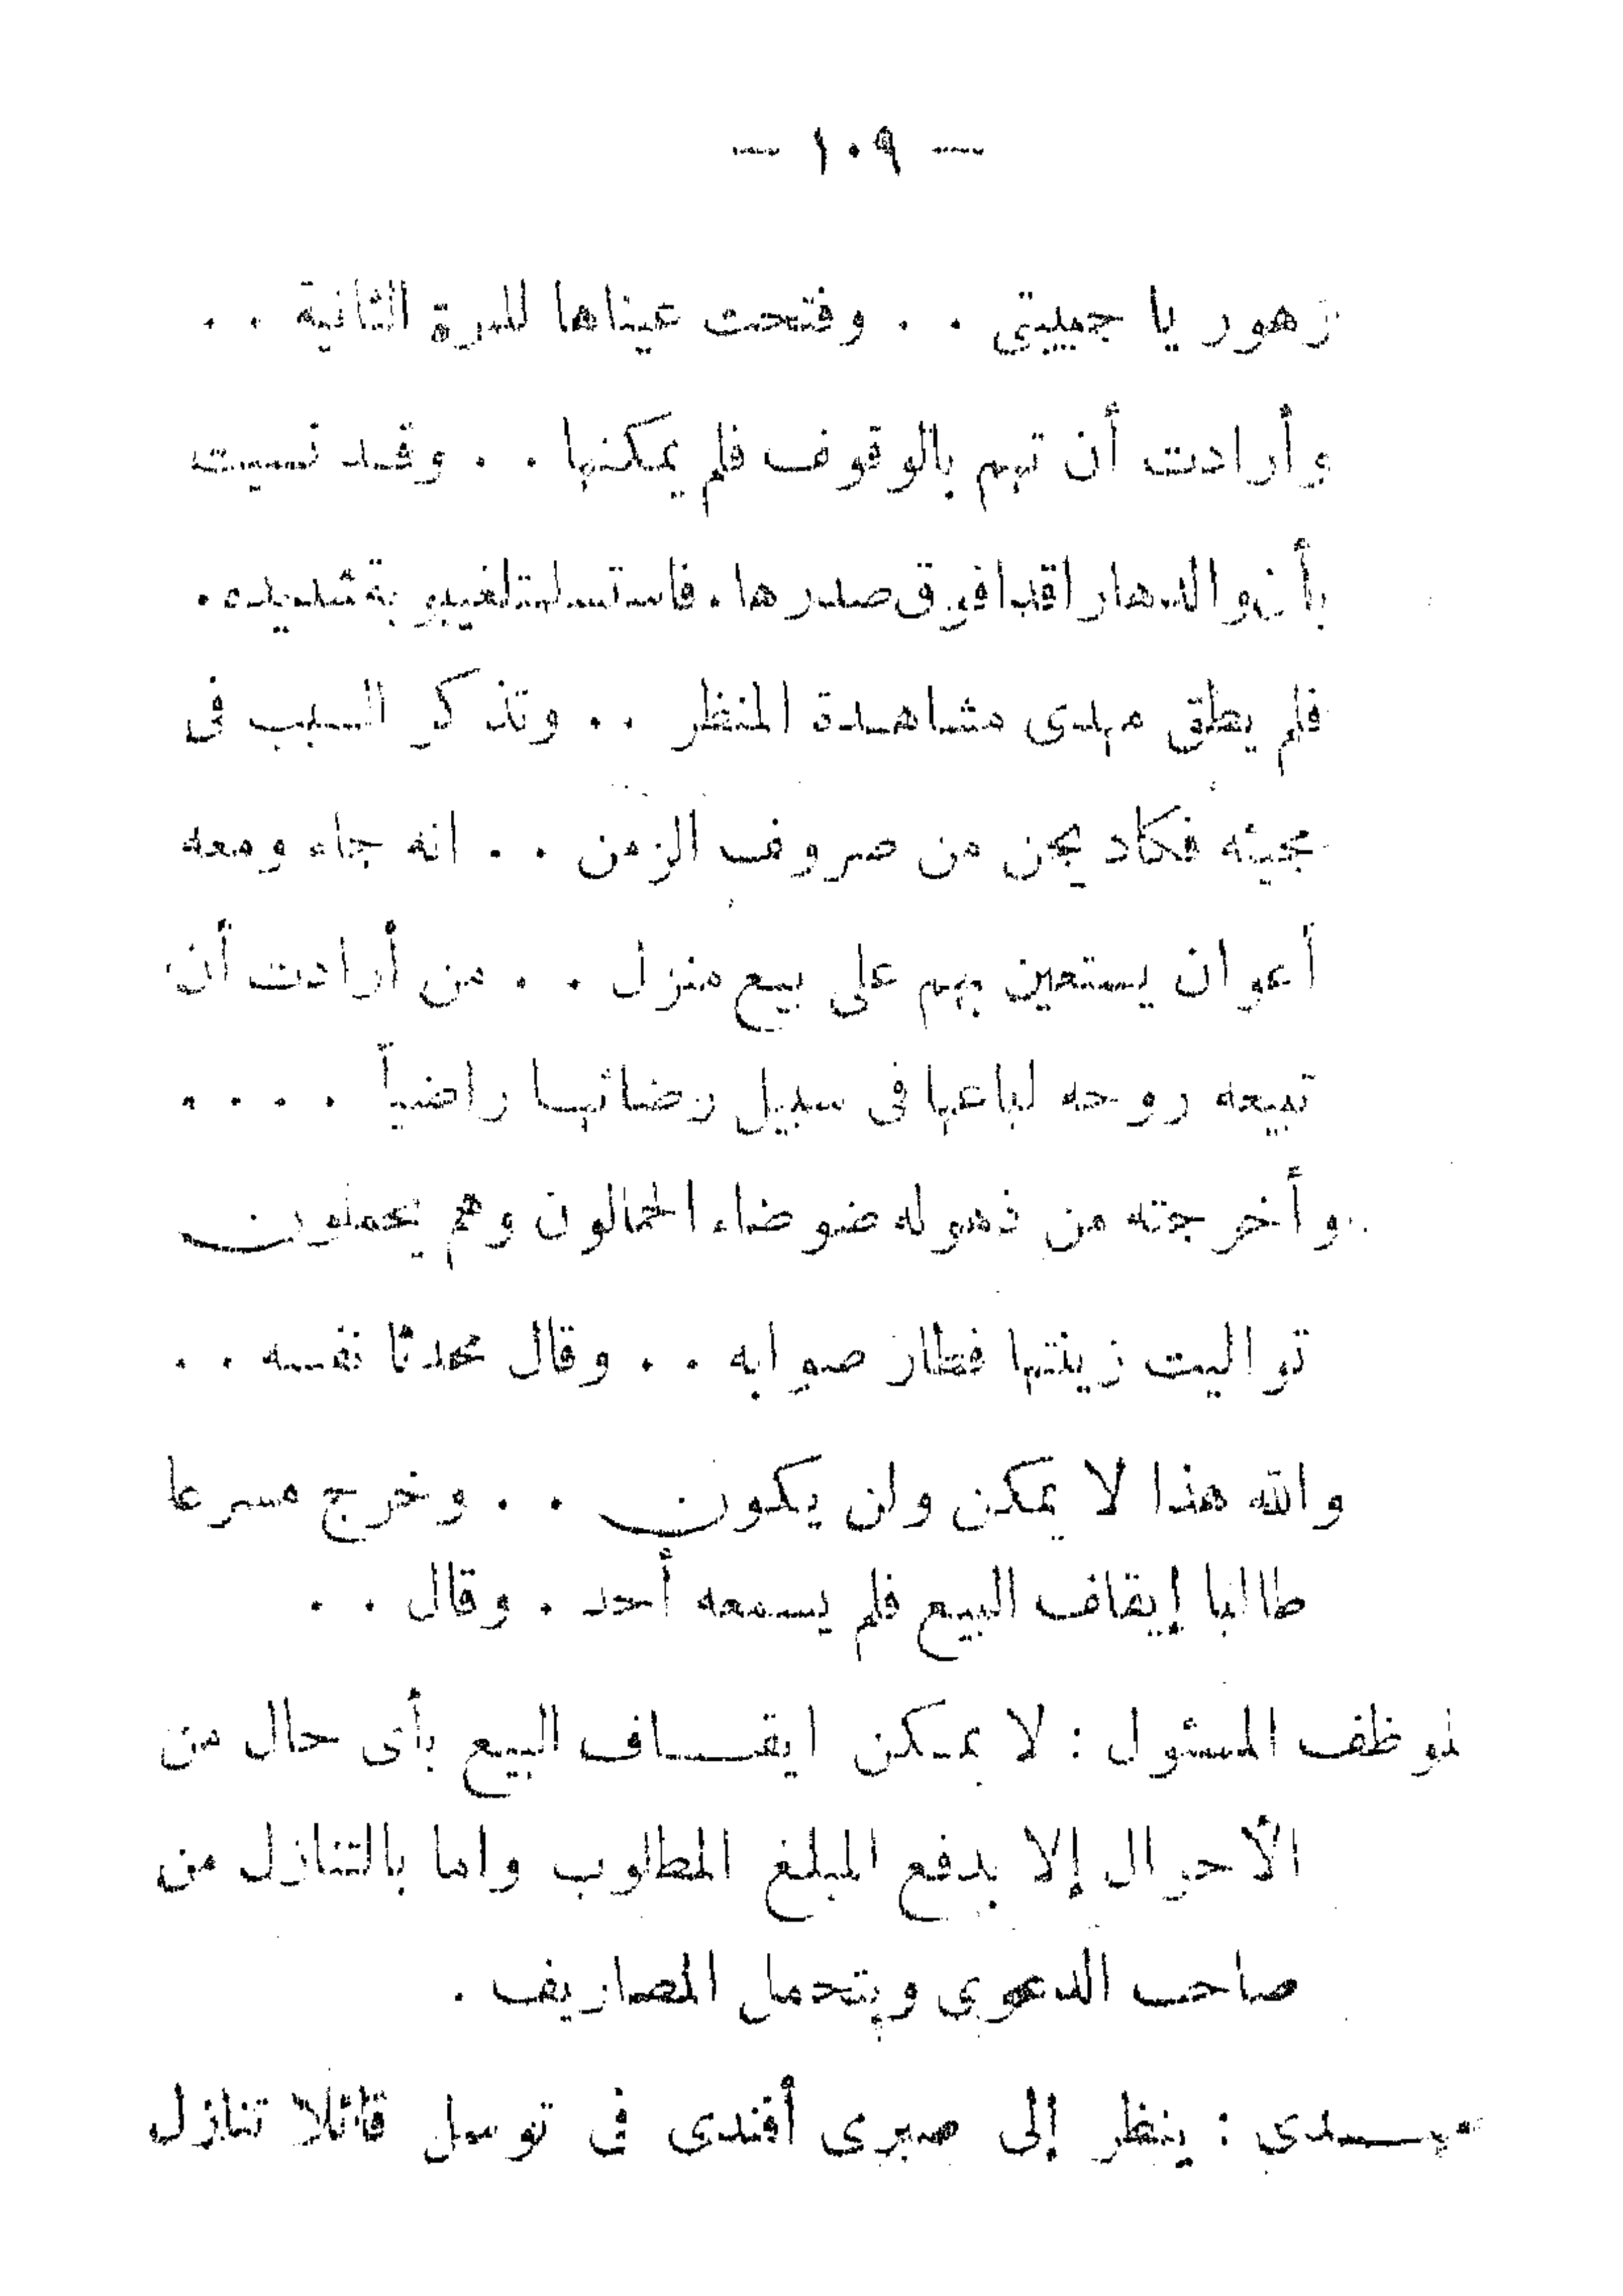 — ١٠٩ —
زهور يا حبيبتى . . وفتحت عيناها للمرة الثانية . .
وأرادت أن تهم بالوقوف فلم يمكنها . . وقد نسيت
بأن والدها راقدا فوق صدرها . فاستسلمت لغيبوبة شديده .
فلم يطق مهدى مشاهدة المنظر . . وتذكر السبب فى
مجيئه فكاد يجن من صروف الزمن . . انه جاء ومعه
أعوان يستعين بهم على بيع منزل . . من أرادت أن
تبيعه روحه لباعها فى سبيل رضائها راضياً . . . .
وأخرجته من ذهوله ضوضاء الحمالون وهم يحملون
تواليت زينتها فطار صوابه . . وقال محدثا نفسه . .
والله هذا لا يمكن ولن يكون . . وخرج مسرعا
طالبا إيقاف البيع فلم يسمعه أحد . وقال . .
لموظف المسئول : لا يمكن ايقاف البيع بأى حال من
الأحوال إلا بدفع المبلغ المطلوب واما بالتنازل من
صاحب الدعوى ويتحمل المصاريف .
مهدى : ينظر إلى صبرى أفندى فى توسل قائلا تنازل